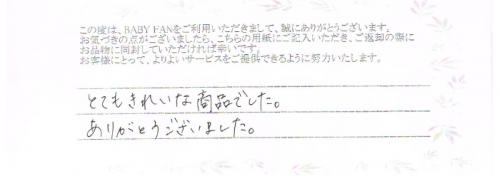 この度は、BABY FANをご利用いただきまして、誠にありがとうございます。
お気づきの点がございましたら、こちらの用紙にご記入いただき、ご返却の際に
お品物に同封していただければ幸いです。
お客様にとって、よりよいサービスをご提供できるように努力いたします。
とてもきれいな商品でした。
ありがとうございました。